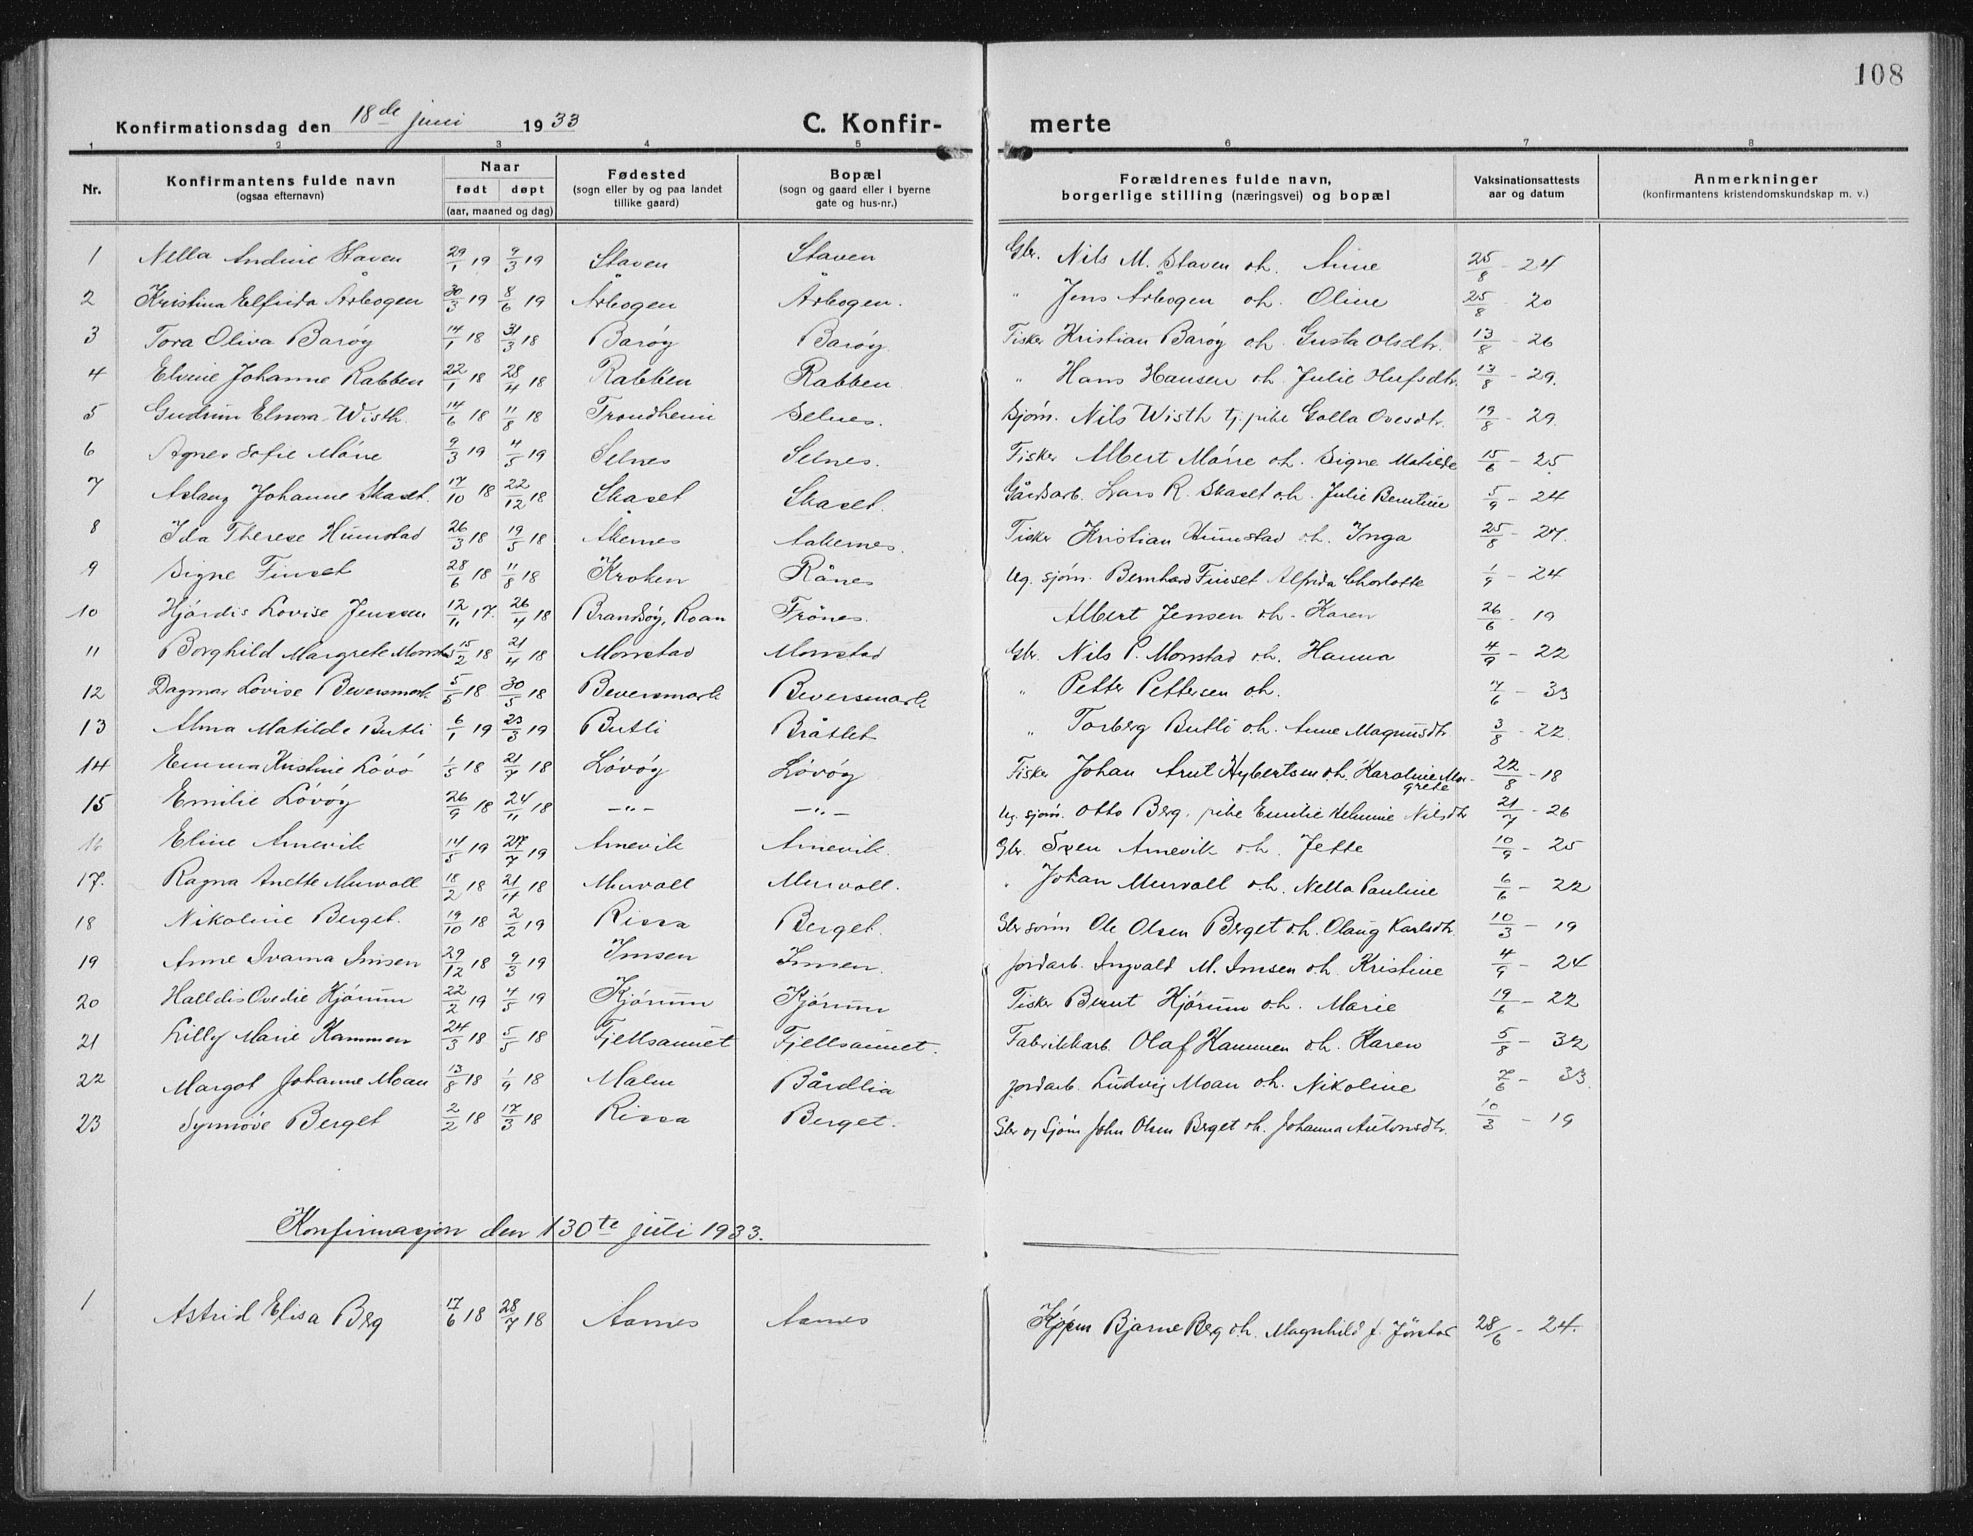 108
Konfirmationsdag den 18de juni 1933 C. Konfir- merte
1 2 3 4 5 6 7 8
Nr. Konfirmantens fulde navn (ogsaa efternavn) Naar født døpt (aar, maaned og dag) Fødested (sogn eller by og paa landet tillike gaard) Bopæl (sogn og gaard eller i byerne gate og hus-nr.) Forældrenes fulde navn, borgerlige stilling (næringsvei) og bopæl Vaksinationsattests aar og datum Anmerkninger (konfirmantens kristendomskundskap m. v.)
1 Nella Andine Staven 29/1 19 9/3 19 Staven Staven Gbr. Nils M. Staven o.h. Anne 25/8 - 24
2 Kristina Elfrida Årbogen 30/3 19 8/6 19 Årbogen Årbogen. " Jens Årbogen o.h. Oline 25/8 - 20
3 Tora Oliva Barøy 14/1 18 31/3 18 Barøy Barøy Fisker Kristian Barøy o.h. Gusta Olsdtr. 13/8 - 26
4 Elvine Johanne Rabben 22/1 18 28/4 18 Rabben Rabben " Hans Hansen o.h. Julie Olufsdtr. 13/8 - 29.
5 Gudrun Elnora Wisth. 14/6 18 11/8 18 Trondheim Selnes. Sjøm. Nils Wisth tj. pike Golla Ovesdtr. 19/8 - 29.
6 Agnes Sofie Møire 9/3 19 4/5 19 Selnes Selnes. Fisker Albert Møire o.h. Signe Matilde 15/6 - 25
7 Aslaug Johanne Skaset. 17/10 18 22/12 18 Skaset Skaset. Gårdsarb. Lars R. Skaset o.h. Julie Berntine 5/9 - 24
8 Ida Therese Humstad 26/3 18 19/5 18 Åkernes Aakernes. Fisker Kristian Humstad o.h. Inga 25/8 - 27.
9 Signe Finset 28/6 18 11/8 18 Kroken Rånes Ug. sjøm. Bernhard Finset Alfrida Charlotte 1/9 - 24
10 Hjørdis Lovise Jenssen 12/11 17. 26/4 18 Brandsøy, Roan Frønes. Albert Jensen o.h. Karen 26/6 - 19
11 Borghild Margrete Monstad 15/2 18 21/4 18 Monstad Monstad Gbr. Nils P. Monstad o.h. Hanna 4/9 - 22
12 Dagmar Lovise Beversmark 5/5 18 30/5 18 Beversmark Beversmark " Petter Pettersen o.h. 7/6 - 33
13 Alma Matilde Butli 6/1 19 23/3 19 Butli Bråtlet " Torberg Butli o.h. Anne Magnusdtr 3/8 - 22.
14 Emma Kristine Løvø 1/5 18 21/7 18 Løvøy Løvøy Fisker Johan Arnt Hybertsen o.h. Karoline Mar-
grete 22/8 - 18
15 Emilie Løvøy 26/9 18 24/11 18 —"— —"— Ug. sjøm. Otto Berg, pike Emilie Helmine Nilsdtr 21/7 - 26
16 Eline Arnevik 14/5 19 27/7 19 Arnevik Arnevik. Gbr. Sven Arnevik o.h. Jette 10/9 - 25
17. Ragna Anette Murvoll 18/2 18 21/4 18 Murvoll Murvoll. " Johan Murvoll o.h. Nella Pauline 6/6 - 22
18 Nikoline Berget. 19/10 18 2/2 19 Rissa Berget. Gbr sjøm Ole Olsen Berget o.h. Olaug Karlsdtr. 10/3 - 19
19 Anne Ivarna Imsen 29/12 18 9/3 19 Imsen Imsen. Jordarb. Ingvald M. Imsen o.h. Kristine 4/9 - 24
20 Halldis Ovedie Kjørum 22/2 19 4/5 19 Kjørum Kjørum Fisker Bernt Kjørum o.h. Marie 19/6 - 22
21 Lilly Marie Kammen 24/3 18 5/5 18 Fjellsaunet Fjellsaunet. Fabrikkarb. Olaf Kammen o.h. Karen 5/8 - 32
22 Margot Johanne Moan 13/8 18 1/9 18 Malm Bårdlia Jordarb. Ludvig Moan o.h. Nikoline 7/6 - 33.
23 Synnøve Berget 2/2 18 17/3 18 Rissa Berget. Gbr og Sjøm John Olsen Berget o.h. Johanna Antonsdtr. 10/3 - 19
Konfirmasjon den 30te juli 1933.
1 Astrid Elisa Berg 17/6 18 28/7 18 Aarnes Aarnes Kjøpm Bjarne Berg o.h. Magnhild f. Jørstad 28/6 - 24.